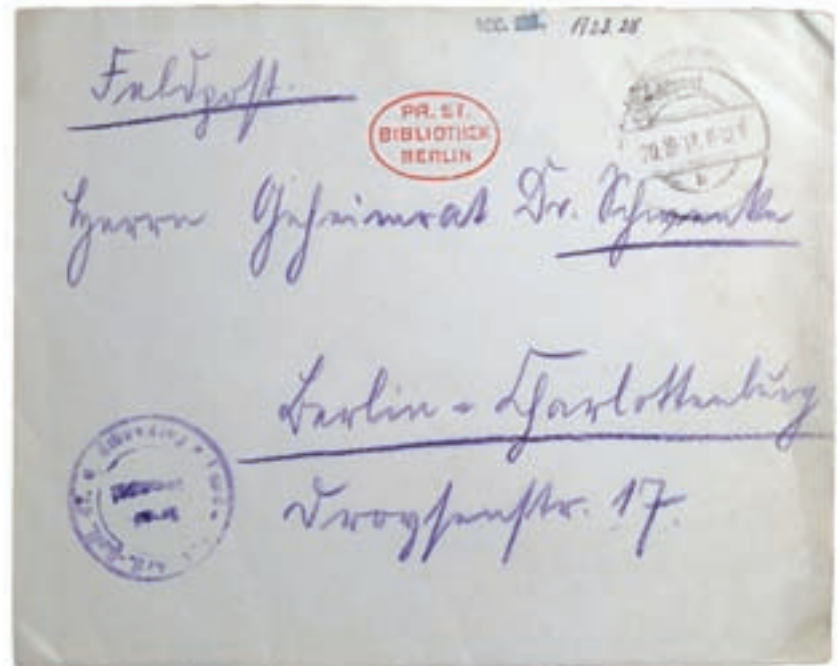 acc. 1923. 28
Feldpost.
PR. ST.
BIBLIOTHEK
BERLIN
Herrn Geheimrat Dr. Schwenke
Berlin-Charlottenburg
Droysenstr. 17.